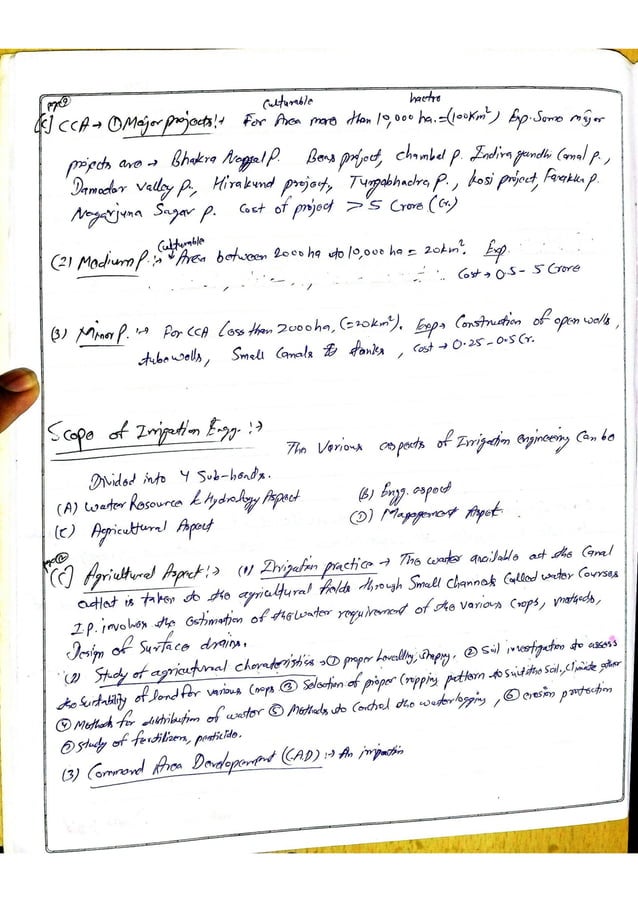 Culturable hactre
(C) CCA → ① Major projects :→ For Area more than 10,000 ha. = (100 Km²) Exp. Some major
projects are → Bhakra Nangal P. Beas project, Chambal P. Indira gandhi Canal P.,
Damodar Valley P., Hirakund project, Tungabhadra P., Kosi project, Farakka P.
Nagarjuna Sagar P. Cost of project > 5 Crore (Cr.)
Culturable
(2) Medium P. :→ Area between 2000 ha to 10,000 ha = 20 km². Exp
Cost → 0.5 - 5 Crore
(3) Minor P. :→ For CCA Less than 2000 ha, (=20 km²). Exp → Construction of open wells,
tube wells, Small Canals & tanks, Cost → 0.25 - 0.5 Cr.
Scope of Irrigation Engg. :→
The Various aspects of Irrigation engineering Can be
Divided into 4 Sub-heads.
(A) Water Resource & Hydrology Aspect (B) Engg. aspect
(C) Agricultural Aspect (D) Management Aspect.
(C) Agricultural Aspect :→ (1) Irrigation practice → The water available at the Canal
outlet is taken to the agricultural fields through Small channels Called water Courses
I.P. involves the estimation of the water requirement of the various Crops, methods,
Design of Surface drains.
(2) Study of agricultural charateristics → ① proper Levelling, shaping. ② Soil investigation to assess
the Suitability of land for various Crops ③ Selection of proper Cropping pattern to Suit the Soil, climate other
④ Methods for distribution of water ⑤ Methods to Control the waterlogging, ⑥ erosion protection
Study of fertilizers, pesticide.
(3) Command Area Developement (CAD) :→ An irrigation